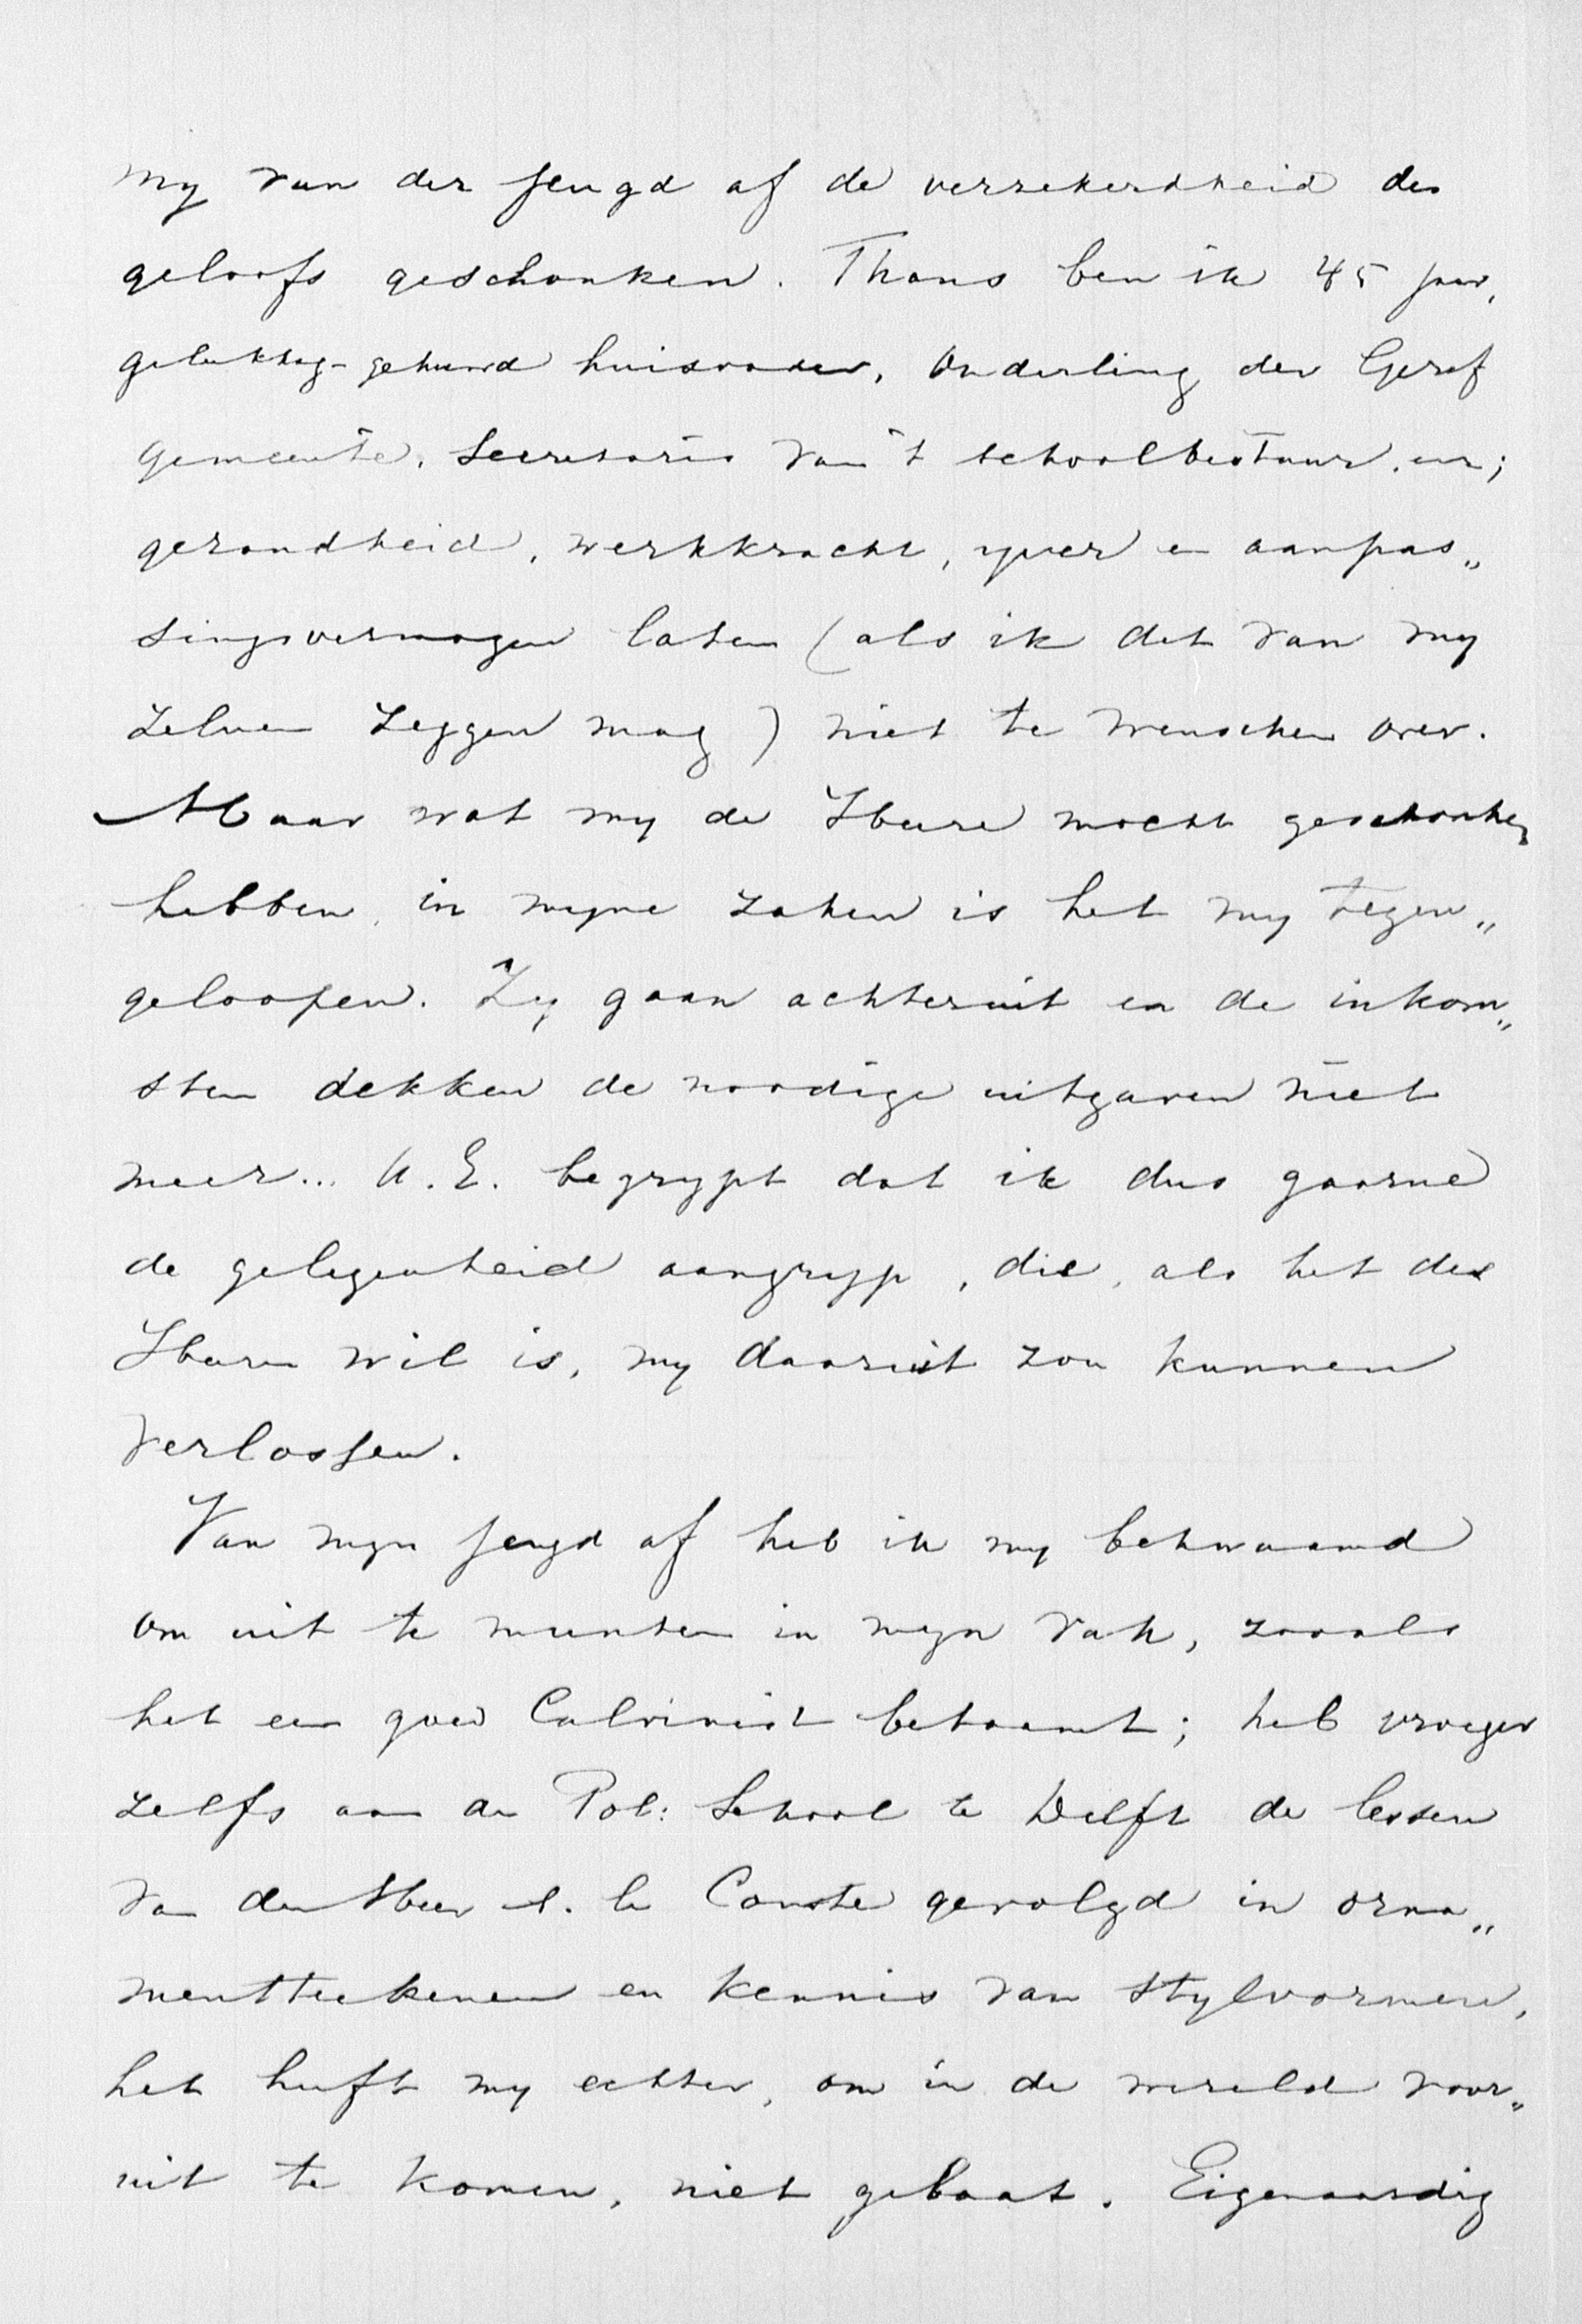 my van der jeugd af de verzekerdheid des
geloofs geschonken. Thans ben ik 45 jaar,
gelukkig-gehuwd huisvader, Ouderling der Geref
gemeente, Secretaris van 't schoolbestuur, enz;
gezondheid, werkkracht, yver en aanpas„
singsvermogen laten (als ik dat van my
zelven zeggen mag) niet te wenschen over.
Maar wat my de Heere mocht geschonken
hebben, in myne zaken is het my tegen„
geloopen. Zy gaan achteruit en de inkom„
sten dekken de noodige uitgaven niet
meer... U.E. begrypt dat ik dus gaarne
de gelegenheid aangryp, die, als het des
Heeren wil is, my daaruit zou kunnen
verlossen.
Van myn jeugd af heb ik my bekwaamd
om uit te munten in myn vak, zooals
het een goed Calvinist betaamt; heb vroeger
zelfs aan de Pol: School te Delft de lessen
van den Heer A. le Comte gevolgd in orna„
mentteekenen en kennis van stylvormen,
het heeft my echter, om in de wereld voor„
uit te komen, niet gebaat. Eigenaardig